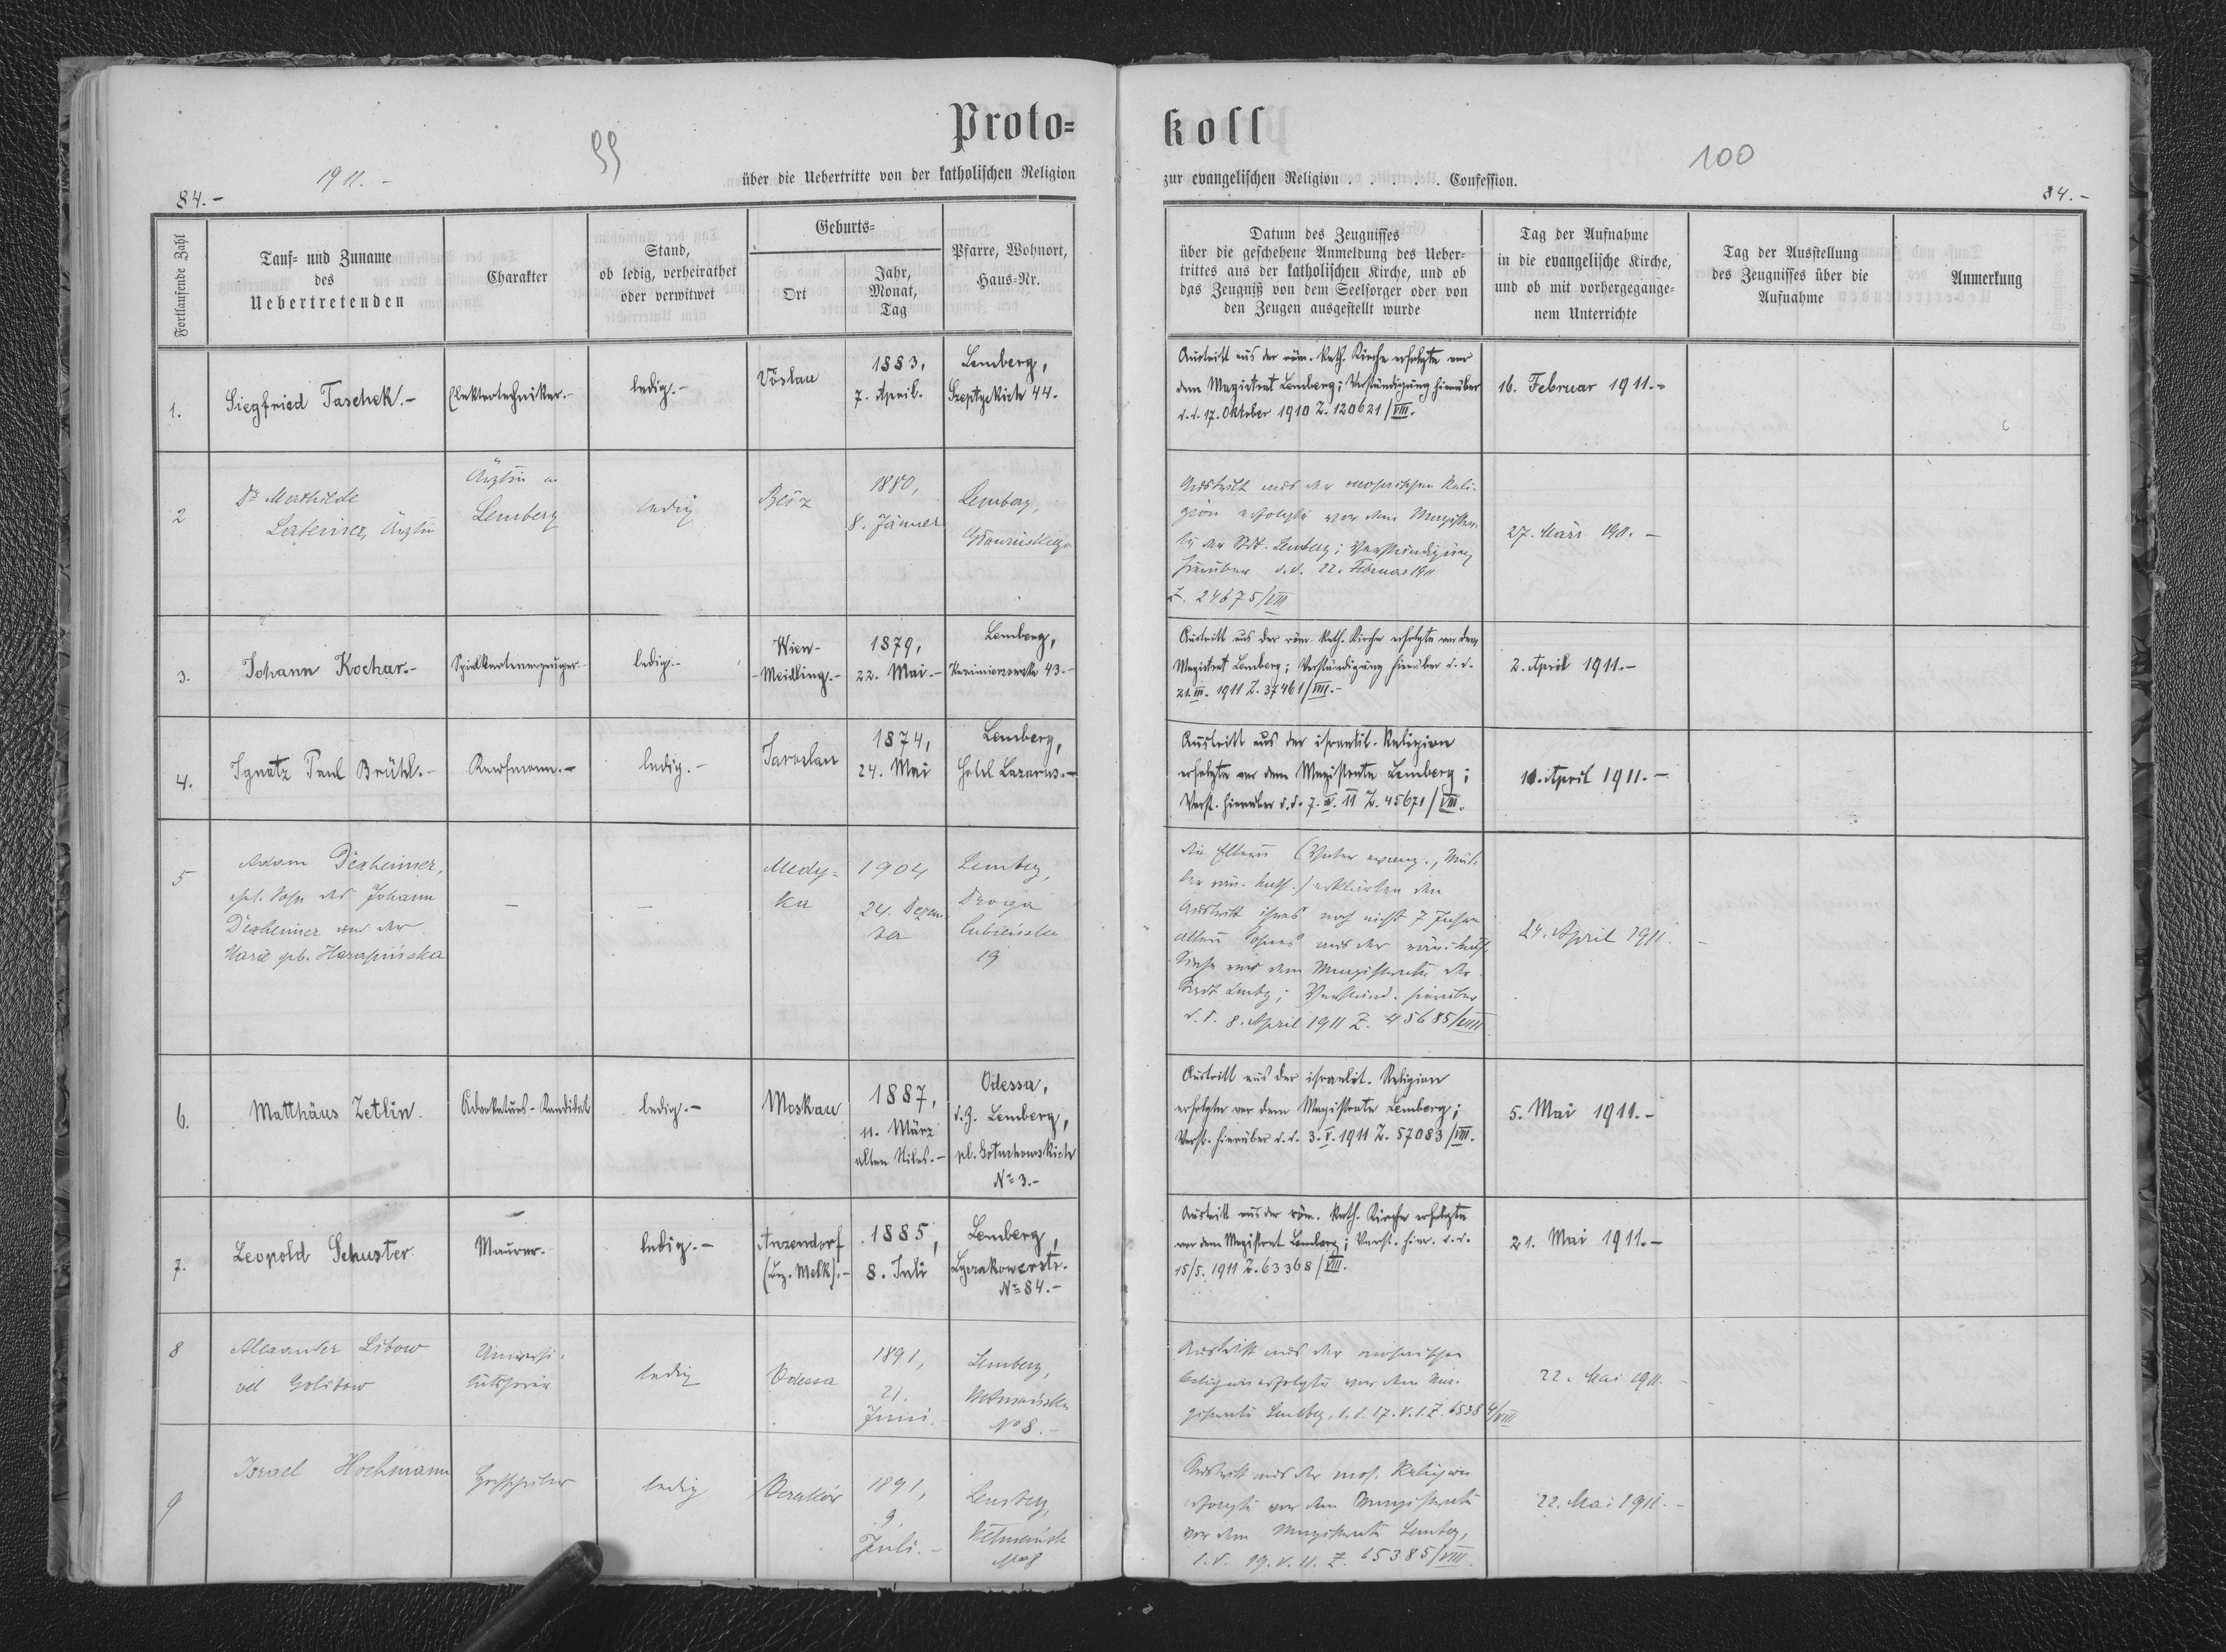 Proto=
koll
99
100
1911.-
über die Uebertritte von der katholischen Religion
zur evangelischen Religion . . . . . Confession.
84.-
84.-
Fortlaufende Zahl
Tauf= und Zuname
des
Uebertretenden
Charakter
Stand,
ob ledig, verheirathet
oder verwitwet
Geburts=
Ort
Jahr,
Monat,
Tag
Pfarre, Wohnort,
Haus=Nr.
Datum des Zeugnisses
über die geschehene Anmeldung des Ueber=
trittes aus der katholischen Kirche, und ob
das Zeugniß von dem Seelsorger oder von
den Zeugen ausgestellt wurde
Tag der Aufnahme
in die evangelische Kirche,
und ob mit vorhergegange=
nem Unterrichte
Tag der Ausstellung
des Zeugnisses über die
Aufnahme
Anmerkung
1.
Siegfried Taschek.-
Elektrotechniker.-
ledig.-
Vöslau
1883,
7. April.
Lemberg,
Szeptyckich 44.
Austritt aus der röm. kath. Kirche erfolgte vor
dem Magistrat Lemberg; Verständigung hierüber
d.d. 17. Oktober 1910 Z. 120621/VIII.
16. Februar 1911.-
2
Dr Mathilde
Lateiner, Ärztin
Ärztin in
Lemberg
ledig
1880,
8. Jänner
Lemberg,
Austritt aus der mosaischen Reli-
gion erfolgte vor dem Magistra-
te der Stdt. Lemberg; Verständigung
hierüber d.d. 22. Februar 1911
Z. 24675/VIII
27. März 1911. -
3.
Johann Kochar.-
Spielkartenerzeuger.-
ledig.-
Wien-
-Meidling.-
1879,
22. Mai.-
Lemberg,
Kazimierzowska 43.-
Austritt aus der röm. kath. Kirche erfolgte vor dem
Magistrat Lemberg; Verständigung hierüber d.d.
21.III. 1911 Z. 37461/VIII.-
2. April 1911.-
4.
Ignatz Paul Brühl.-
Kaufmann.-
ledig.-
Jaroslau
1874,
24. Mai
Lemberg,
Hotel Lazarus.-
Austritt aus der israelit. Religion
erfolgte vor dem Magistrate Lemberg;
Verst. hierüber d.d. 7. IV. 11 Z. 45671/VIII.
11. April 1911.-
5
Adam Dexheimer,
ehl. Sohn des Johann
Dexheimer und der
Marie geb.
-
-
Medy=
ka
1904
24. Dezem
ber
Lemberg,
Droga
19
die Eltern (Vater evang., Mut-
ter röm. kath.) erklärten den
Austritt ihres noch nicht 7 Jahre
alten Sohnes aus der röm. kath.
Kirche vor dem Magistrate der
Stadt Lembg; Verständ. hierüber
d.d. 8. April 1911 Z. 45685/VIII
24. April 1911. -
6.
Matthäus Zetlin.
Advokaturs-Kandidat
ledig.-
Moskau
1887,
11. März
alten Stiles.-
Odessa,
d.Z. Lemberg,
pl. Gołuchowskich
No 3.-
Austritt aus der israelit. Religion
erfolgte vor dem Magistrate Lemberg;
Verst. hierüber d.d. 3.V. 1911 Z. 57083/VIII.
5. Mai 1911.-
7.
Leopold Schuster
Maurer.
ledig.-
Anzendorf
(Bez. Melk).-
1885,
8. Juli
Lemberg,
Lyczakowerstr.
No 84.-
Austritt aus der röm. kath. Kirche erfolgte
vor dem Magistrat Lemberg; Verst. hier. d.d.
15/5. 1911 Z. 63368/VIII.
21. Mai 1911.-
8
Alexander Libow
vel Golibow
Universi-
tätshörer
ledig
Odessa
1891,
21.
Juni.
Lemberg,
Hetmańska
No 8.-
Austritt aus der mosaischen
Religion erfolgte vor dem Ma-
gistrate Lemberg, d.d. 17.V. Z. 65384/VIII
22. Mai 1911. -
9
Israel Hochmann
ledig
1891,
9.
Juli.-
Lemberg,
Hetmańska
No 8
Austritt aus der mos. Religion
erfolgte vor dem Magistrate
vor dem Magistrate Lemberg,
d.d. 19.V.11. Z. 65385/VIII.
22. Mai 1911. -